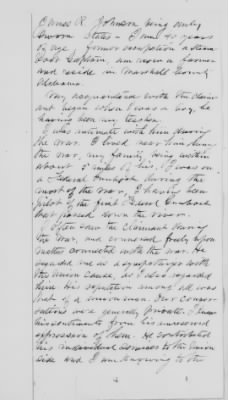 James R. Johnson being duly
sworn states - I am 40 years
of age former occupation a steam
boat Captain, am now a farmer
and reside in Marshall County
Alabama.
My acquaintance with the claim-
ant began when I was a boy, he
having been my teacher.
I was intimate with him during
the war. I lived near him during
the war, my family being within
about 3 miles of his. I was on
a Federal Gunboat during the
most of the war, I having been
pilot of the first Gunboat
that passed down the river.
I often saw the claimant during
the war, and conversed freely upon
matters connected with the war. He
regarded me as a sympathizer with
the Union cause, as I also regarded
him. His reputation among all was
that of a union man. Our conver-
sations were generally private. I knew
his sentiments from his unreserved
expression of them. He contributed
his individual services to the Union
side and I am Knowing to the